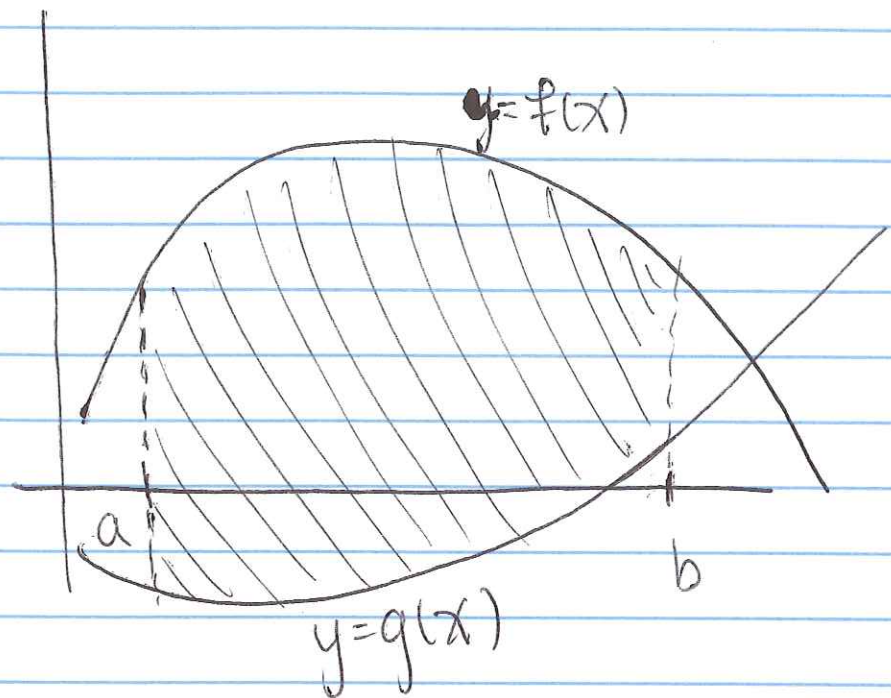 y=f(x)
a
b
y=g(x)